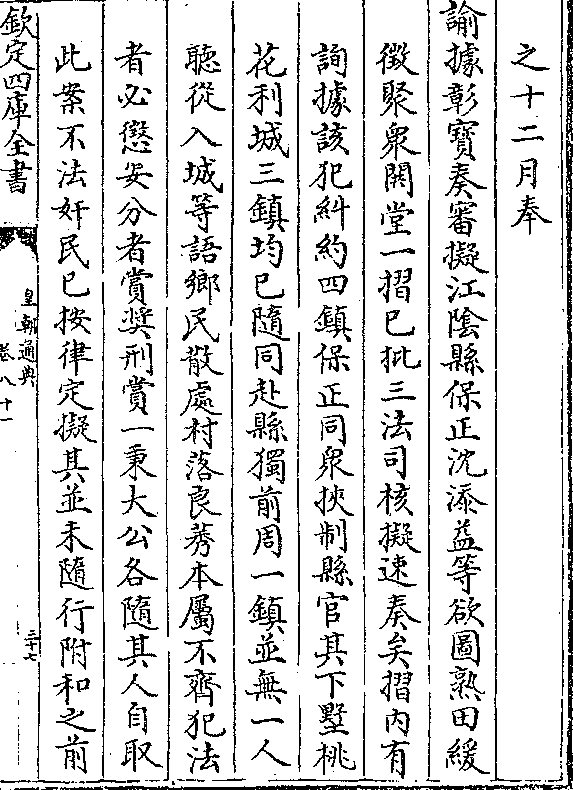 之十二月奉
諭據彰寶奏審擬江隂縣保正沈添益等欲圖熟田緩
徵聚衆鬧堂一摺已批三法司核擬速奏矣摺内有
詢據該犯糾約四鎮保正同衆挾制縣官其下墅桃
花利城三鎮均已隨同赴縣獨前周一鎮並無一人
聽從入城等語鄉民散處村落良莠本屬不齊犯法
者必懲安分者賞奬刑賞一秉大公各隨其人自取
此案不法奸民已按律定擬其並未隨行附和之前
欽定四庫全書
皇朝通典
卷八十一
三十七